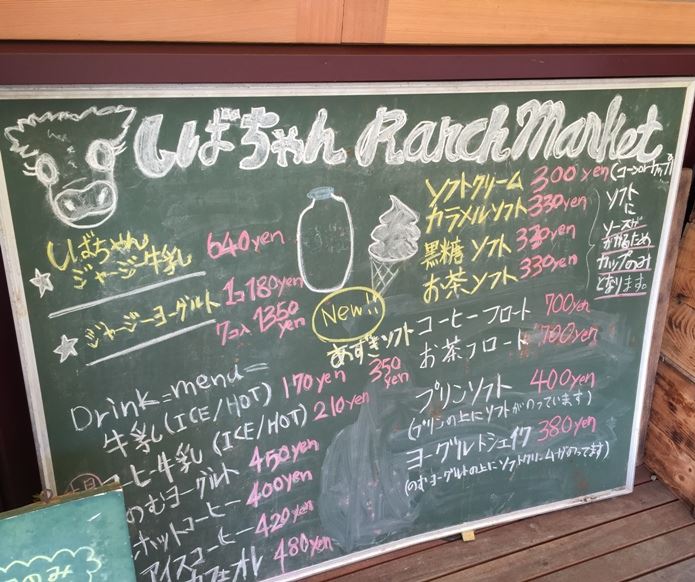 しばちゃん Ranch Market
しばちゃん
ジャージー牛乳 640yen
ジャージーヨーグルト 1コ 180yen
7コ入 1350yen
Drink=menu=
牛乳(ICE/HOT) 170yen
コーヒー牛乳(ICE/HOT) 210yen
のむヨーグルト 450yen
ホットコーヒー 400yen
アイスコーヒー 420yen
カフェオレ 480yen
New!!
あずきソフト 350yen
ソフトクリーム 300yen (コーンorカップ)
カラメルソフト 330yen
黒糖ソフト 330yen
お茶ソフト 330yen
ソフトに
ソースが
かかるため
カップのみ
となります。
コーヒーフロート 700yen
お茶フロート 700yen
プリンソフト 400yen
(プリンの上にソフトがのっています)
ヨーグルトシェイク 380yen
(のむヨーグルトの上にソフトクリームがのってます)